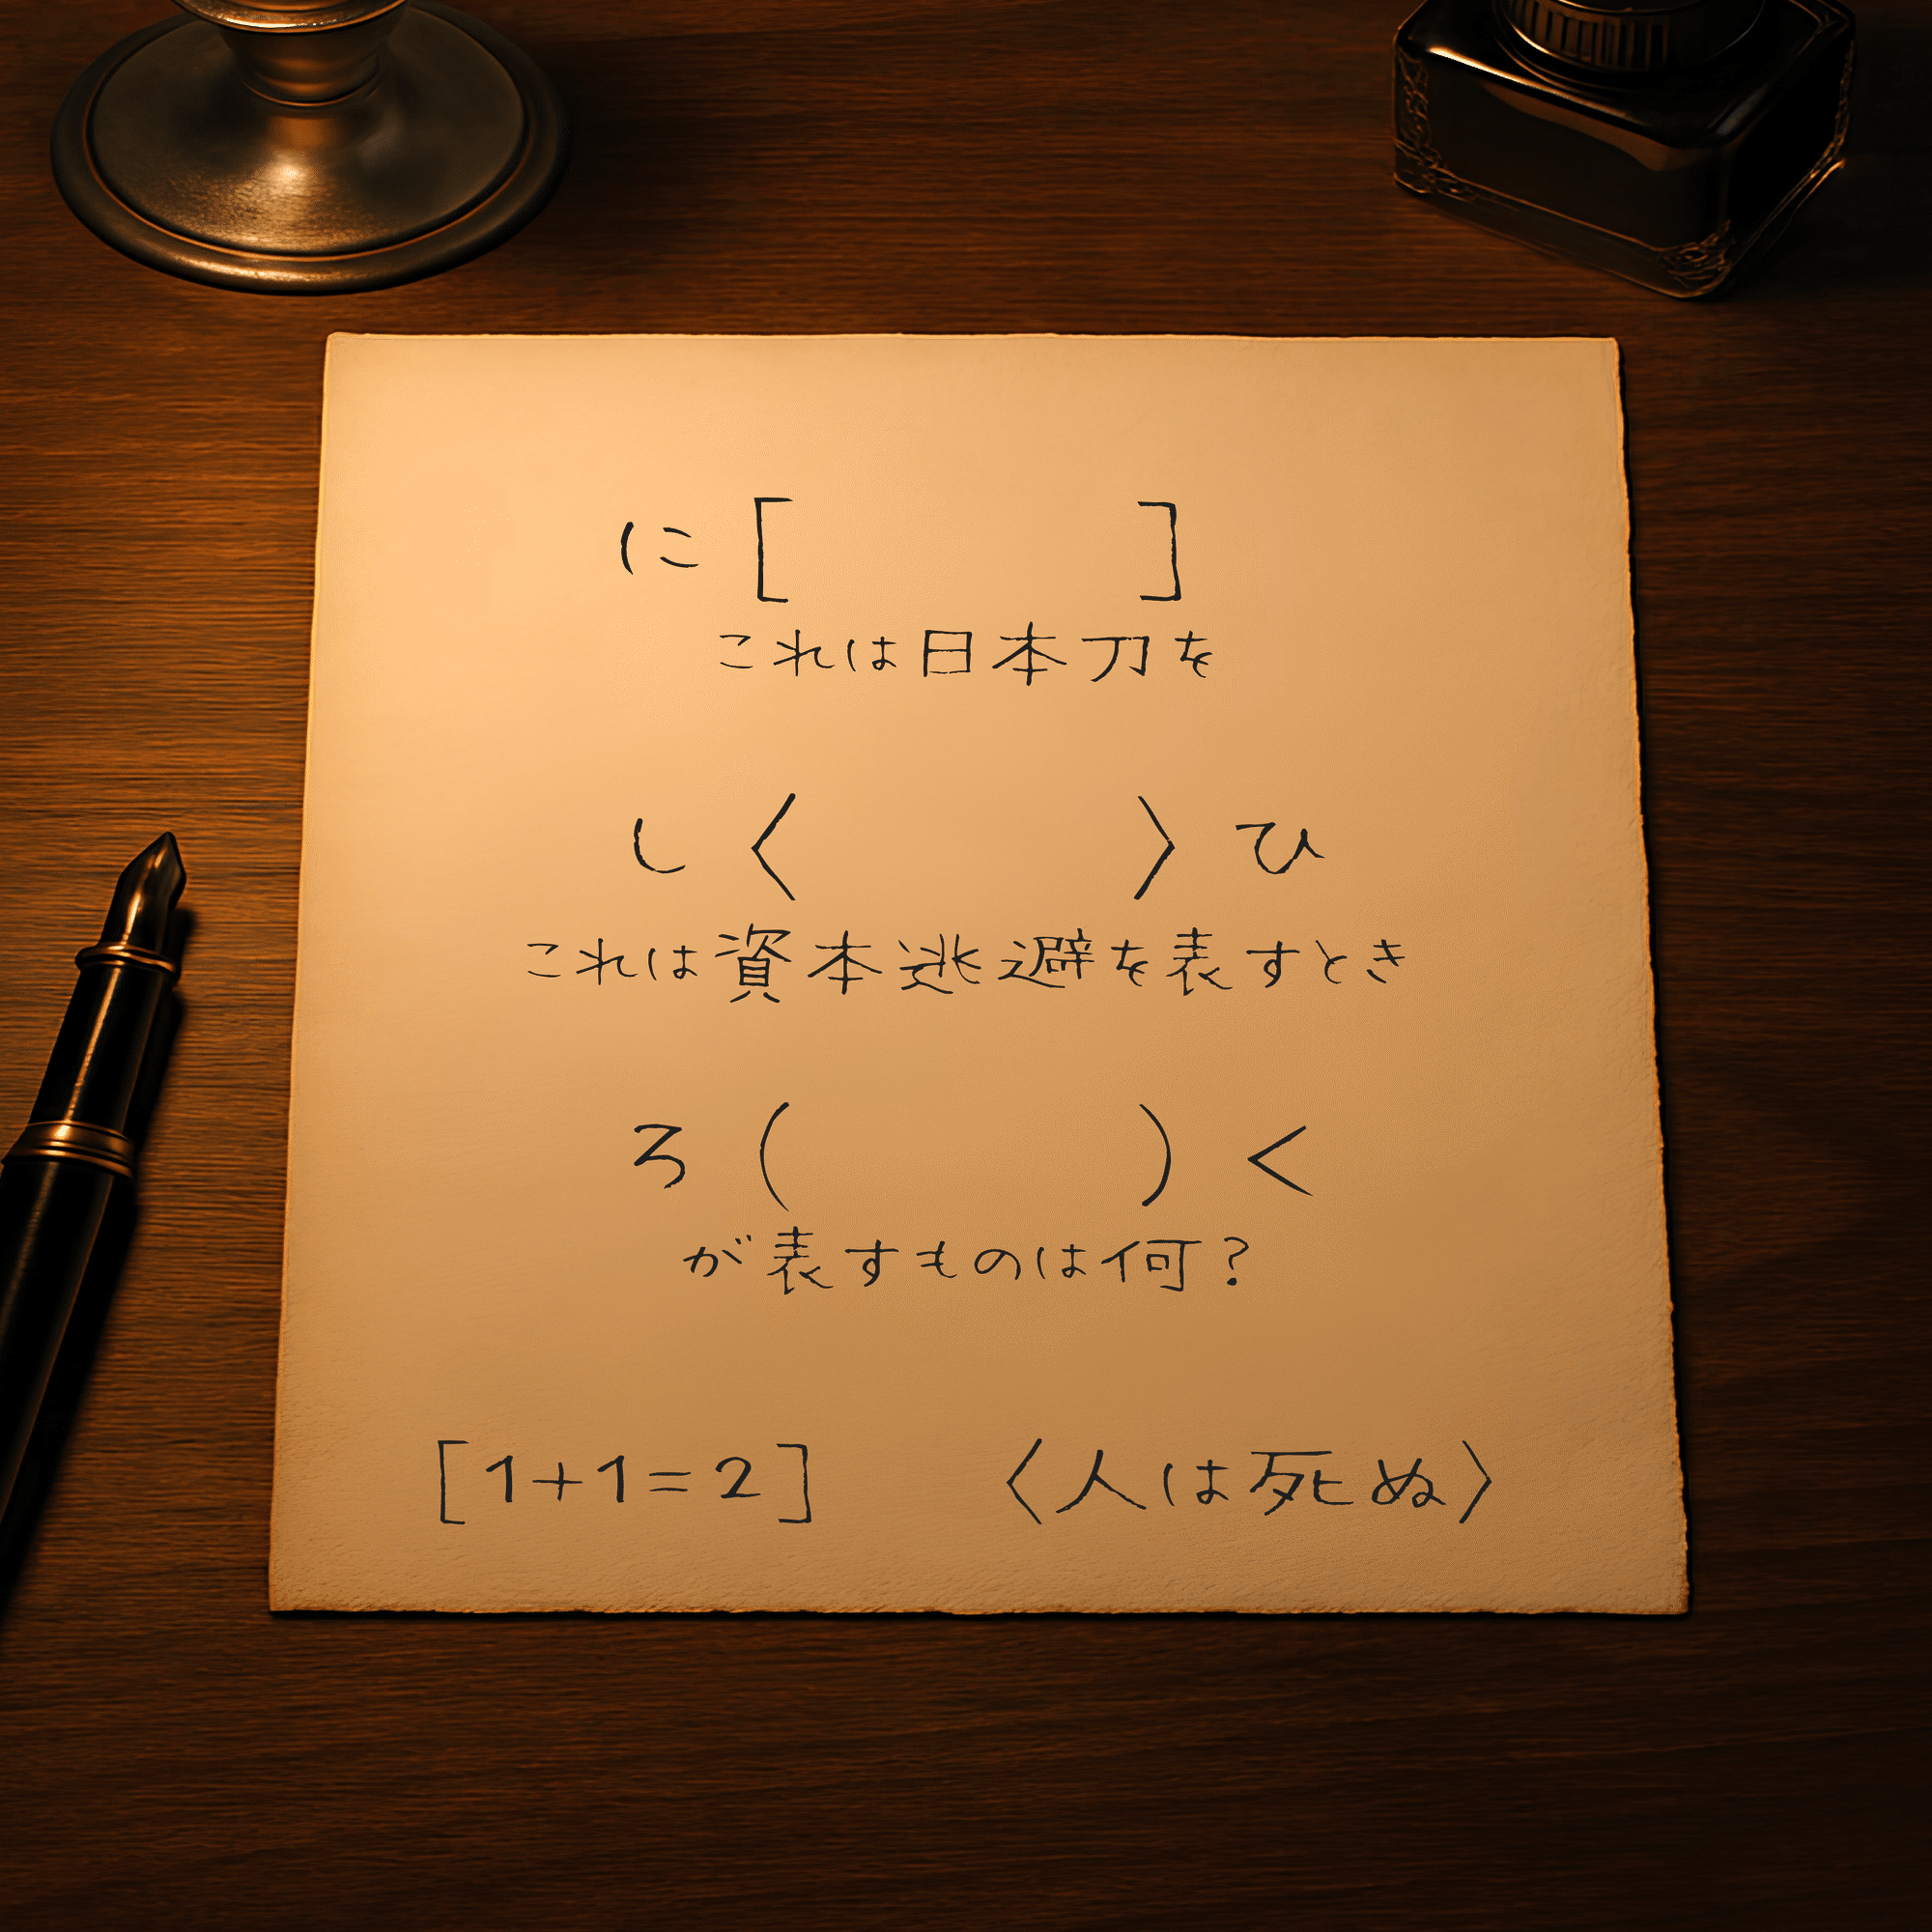 に[　　　　]
これは日本刀を
し〈　　　　〉ひ
これは資本逃避を表すとき
ろ(　　　　)く
が表すものは何?
[1+1=2]　　〈人は死ぬ〉